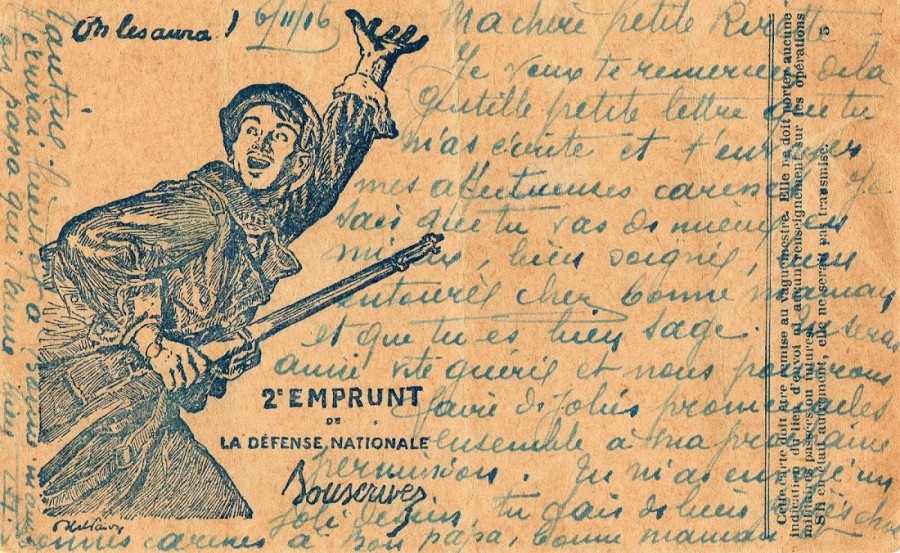 On les aura !
6/11/16
Ma chère petite
Je veux te remercier de la
gentille petite lettre que tu
m'as écrite et t'envoyer
mes affectueuses caresses.
sais que tu vas de mieux en
mieux, bien soigné, bien
entouré chez bonne maman
et que tu es bien sage. Tu seras
ainsi vite guéri et nous pourrons
faire de jolies promenades
ensemble à ma prochaine
permission. Tu m'as envoyé un
joli dessin, tu fais de bien
bonnes caresses à bon papa, bonne maman
2E EMPRUNT
DE
LA DÉFENSE NATIONALE
Souscrivez
Cette carte doit être remise au vaguemestre. Elle ne doit porter aucune
indication du lieu d'envoi ni aucun renseignement sur les opérations
militaires passées ou futures.
S'il en était autrement, elle ne serait pas transmise.
5
gentil. bientôt à
ton papa qui t'aime bien